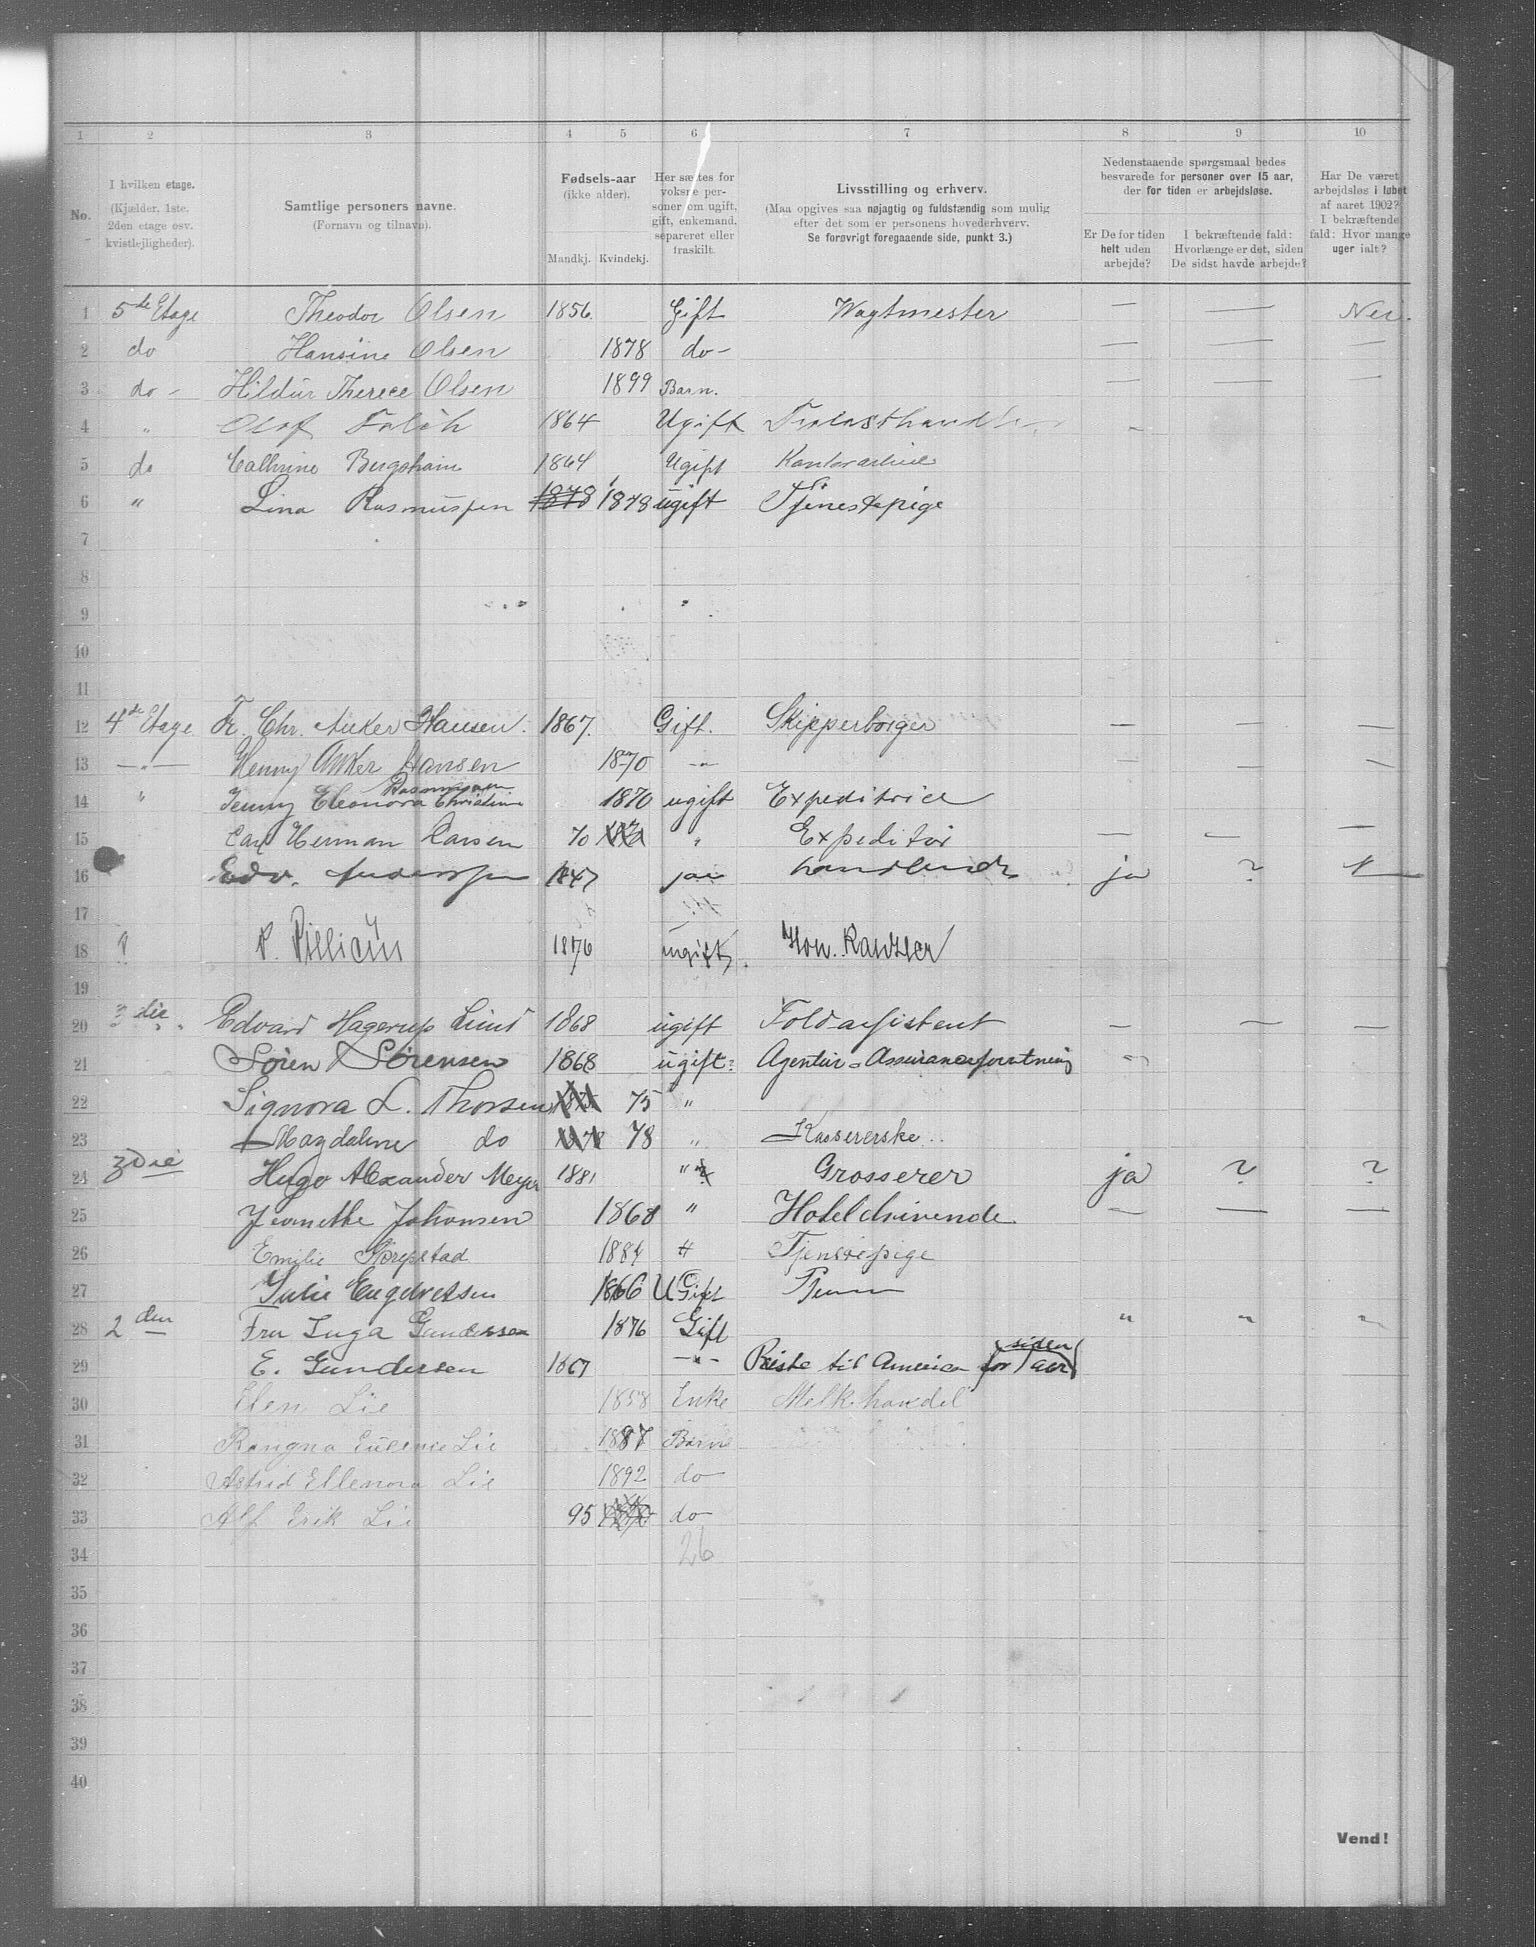 1 2 3 4 5 6 7 8 9 10
No.
I hvilken etage. (Kjælder. 1ste. 2den etage osv. kvistlejligheder).
Samtlige personers navne. (Fornavn og tilnavn).
Fødsels-aar (ikke alder). Mandkj. Kvindekj.
Her sættes for voksne personer om ugift, gift, enkemand, separeret eller fraskilt.
Livsstilling og erhverv. (Maa opgives saa nøjagtig og fuldstændig som mulig efter det som er personens hovederhverv. Se forøvrigt foregaaende side, punkt 3.)
Nedenstaaende spørgsmaal bedes besvarede for personer over 15 aar, der for tiden er arbejdsløse.
Er De for tiden helt uden arbejde?
I bekræftende fald: Hvorlænge er det, siden De sidst havde arbejde?
Har De været arbejdsløs i løbet af aaret 1902? I bekræftende fald: Hvor mange uger ialt?
1 5te Etage Theodor Olsen 1856. Gift Vagtmester — — Nei.
2 do Hansine Olsen 1878 do- — — —
3 do - Hildur Therece Olsen 1899 Barn. — — —
4 " Olof 1864 Ugift -
5 do Cathrine 1864 Ugift
6 " Lina Rasmussen 1878 1878 ugift Tjenestepige
7
8
9
10
11
12 4de Etage Fr. Chr. Anker Hansen. 1867. Gift. Skipperborger — — —
13 —"— Henny Anker Hansen 1870 -"- — — —
14 " Jenny Eleonora Christine Rasmussen 1870 ugift Expeditrice
15 Carl Herman Larsen 70 " Expeditør — — —
16 Edv. 1847 handlende ja ?
17
18 ? P. 1876 ugift
19
20 3die " Edvard Hagerup Lund 1868 ugift Toldassistent — — —
21 Søren Sørensen 1868 ugift: Agentur - Assuranceforretning -"-
22 Signora L. Thorsen 75 "
23 Magdaline do 78 " Kassererske..
24 3die Hugo Alexander Meyer 1881 " Grosserer ja ? ?
25 Jeanette Johansen 1868 " Hoteldrivende — — —
26 Emilie 1884 " Tjenestepige
27 Julie Engebretsen 1866 U Gift
28 2den Fru Inga Gundersen 1876 Gift " " "
29 E. Gundersen 1867 -"- Reiste til America for 1 aar siden
30 Elen Lie 1858 Enke Melkehandel
31 Rangna Eugenie Lie 1887 Barn
32 Astrid Ellenora Lie 1892 do
33 Alf Erik Lie 95 do
34 26
35
36
37
38
39
40
Vend!